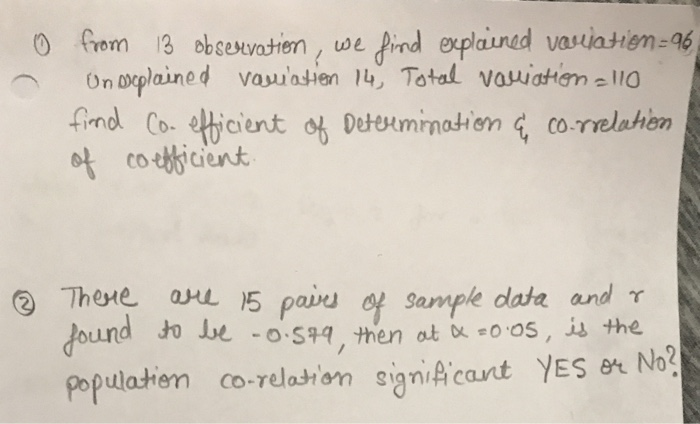 ① from 13 observation, we find explained variation = 96
Unexplained variation 14, Total variation = 110
find Co-efficient of Determination & co-rrelation
of coefficient.
② There are 15 pairs of sample data and r
found to be -0.579, then at α = 0.05, is the
population co-relation significant YES or No?